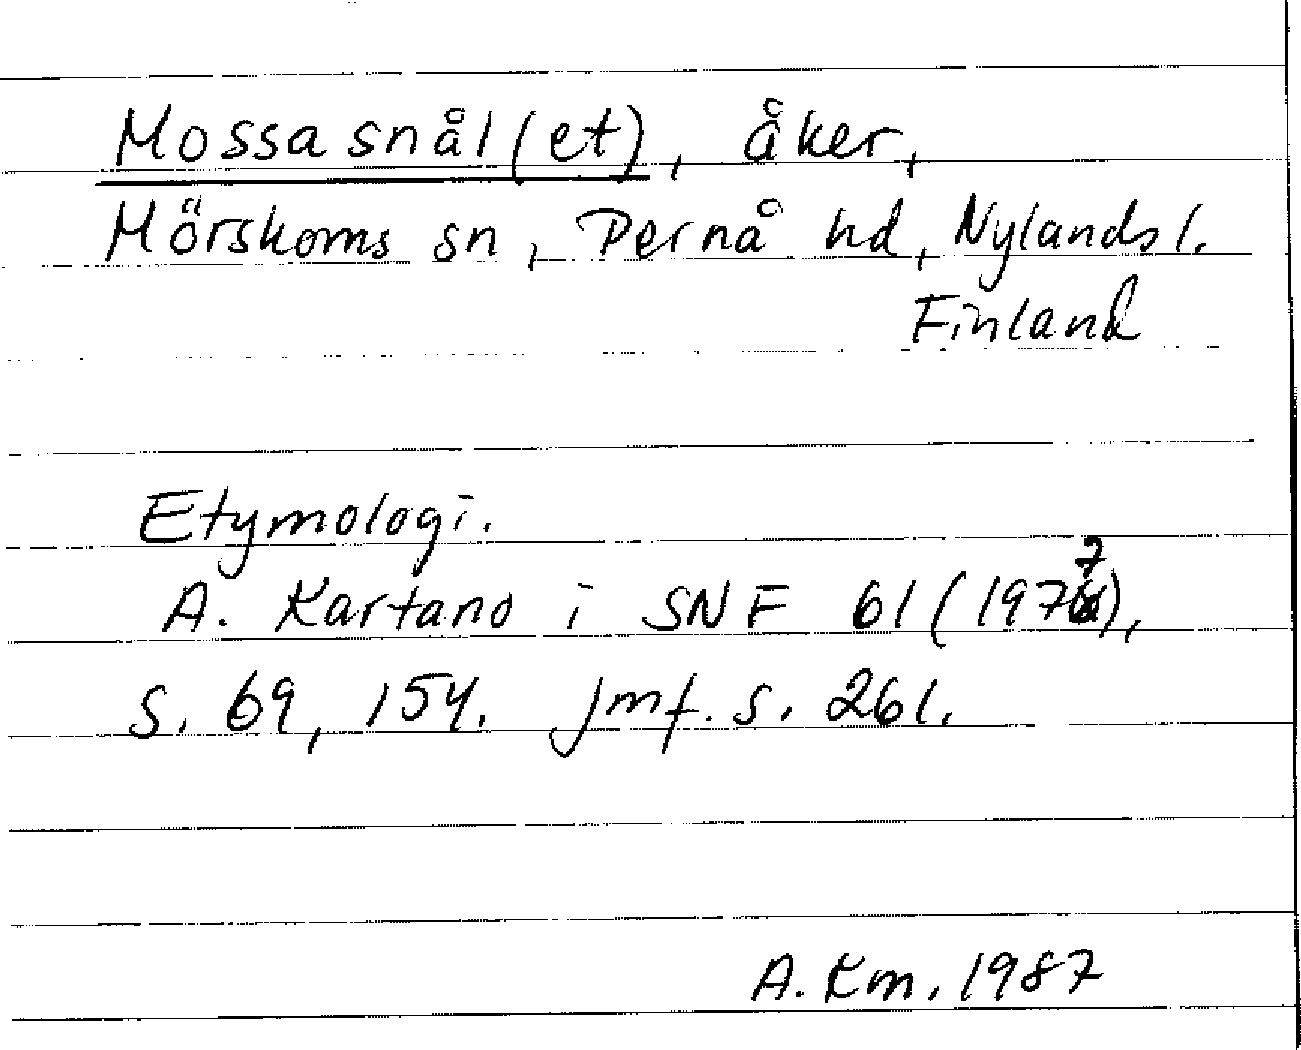 Mossasnål(et), åker,
Mörskoms sn, Pernå hd, Nylands l.
Finland
Etymologi.
A. Kartano i SNF 61 (1977),
s. 69, 154. Jmf. s. 261.
A. Km. 1987